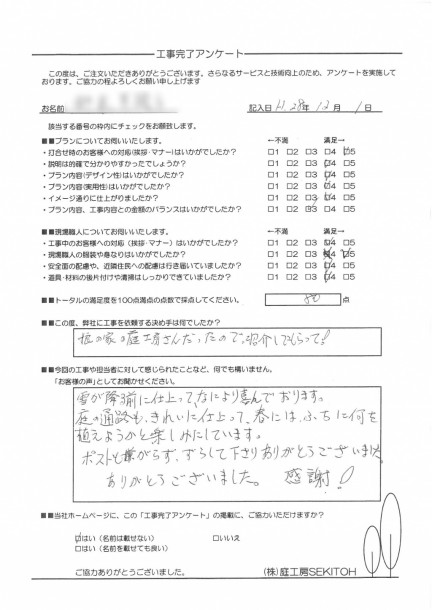 工事完了アンケート
この度は、ご注文いただきありがとうございます。さらなるサービスと技術向上のため、アンケートを実施して
おります。ご協力の程よろしくお願い申し上げます
お名前
記入日 H.28年12月1日
該当する番号の枠内にチェックをお願致します。
■■プランについてお伺いいたします。 ←不満 満足→
・打合せ時のお客様への対応(挨拶・マナー)はいかがでしたか? □1 □2 □3 □4 □5
・説明は的確で分かりやすかったでしょうか? □1 □2 □3 □4 □5
・プラン内容(デザイン性)はいかがでしたか? □1 □2 □3 □4 □5
・プラン内容(実用性)はいかがでしたか? □1 □2 □3 □4 □5
・イメージ通りに仕上がりましたか? □1 □2 □3 □4 □5
・プラン内容、工事内容との金額のバランスはいかがでしたか? □1 □2 □3 □4 □5
■■現場職人についてお伺いいたします。 ←不満 満足→
・工事中のお客様への対応(挨拶・マナー)はいかがでしたか? □1 □2 □3 □4 □5
・現場職人の服装や身なりはいかがでしたか? □1 □2 □3 □4 □5
・安全面の配慮や、近隣住民への配慮は行き届いていましたか? □1 □2 □3 □4 □5
・道具・材料の後片付けや清掃はしっかりできていましたか? □1 □2 □3 □4 □5
■■トータルの満足度を100点満点の点数で採点してください。 80 点
■■この度、弊社に工事を依頼する決め手は何でしたか?
の家の庭工房さんだったので、紹介してもらって!
■■今回の工事や担当者に対して感じられたことなど、何でも構いません。
「お客様の声」としてお聞かせください。
雪が降る前に仕上ってなにより喜んでおります。
庭の通路も、きれいに仕上って、春には、ふちに何を
植えようかと楽しみにしています。
ポストも嫌がらず、ずらして下さりありがとうございました。
ありがとうございました。 感謝!
■■当社ホームページに、この「工事完了アンケート」の掲載に、ご協力いただけますか?
☑はい(名前は載せない) □いいえ
□はい(名前を載せても良い)
ご協力ありがとうございました。
(株)庭工房SEKITOH